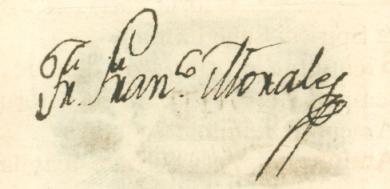 Fr. Franco. Morales